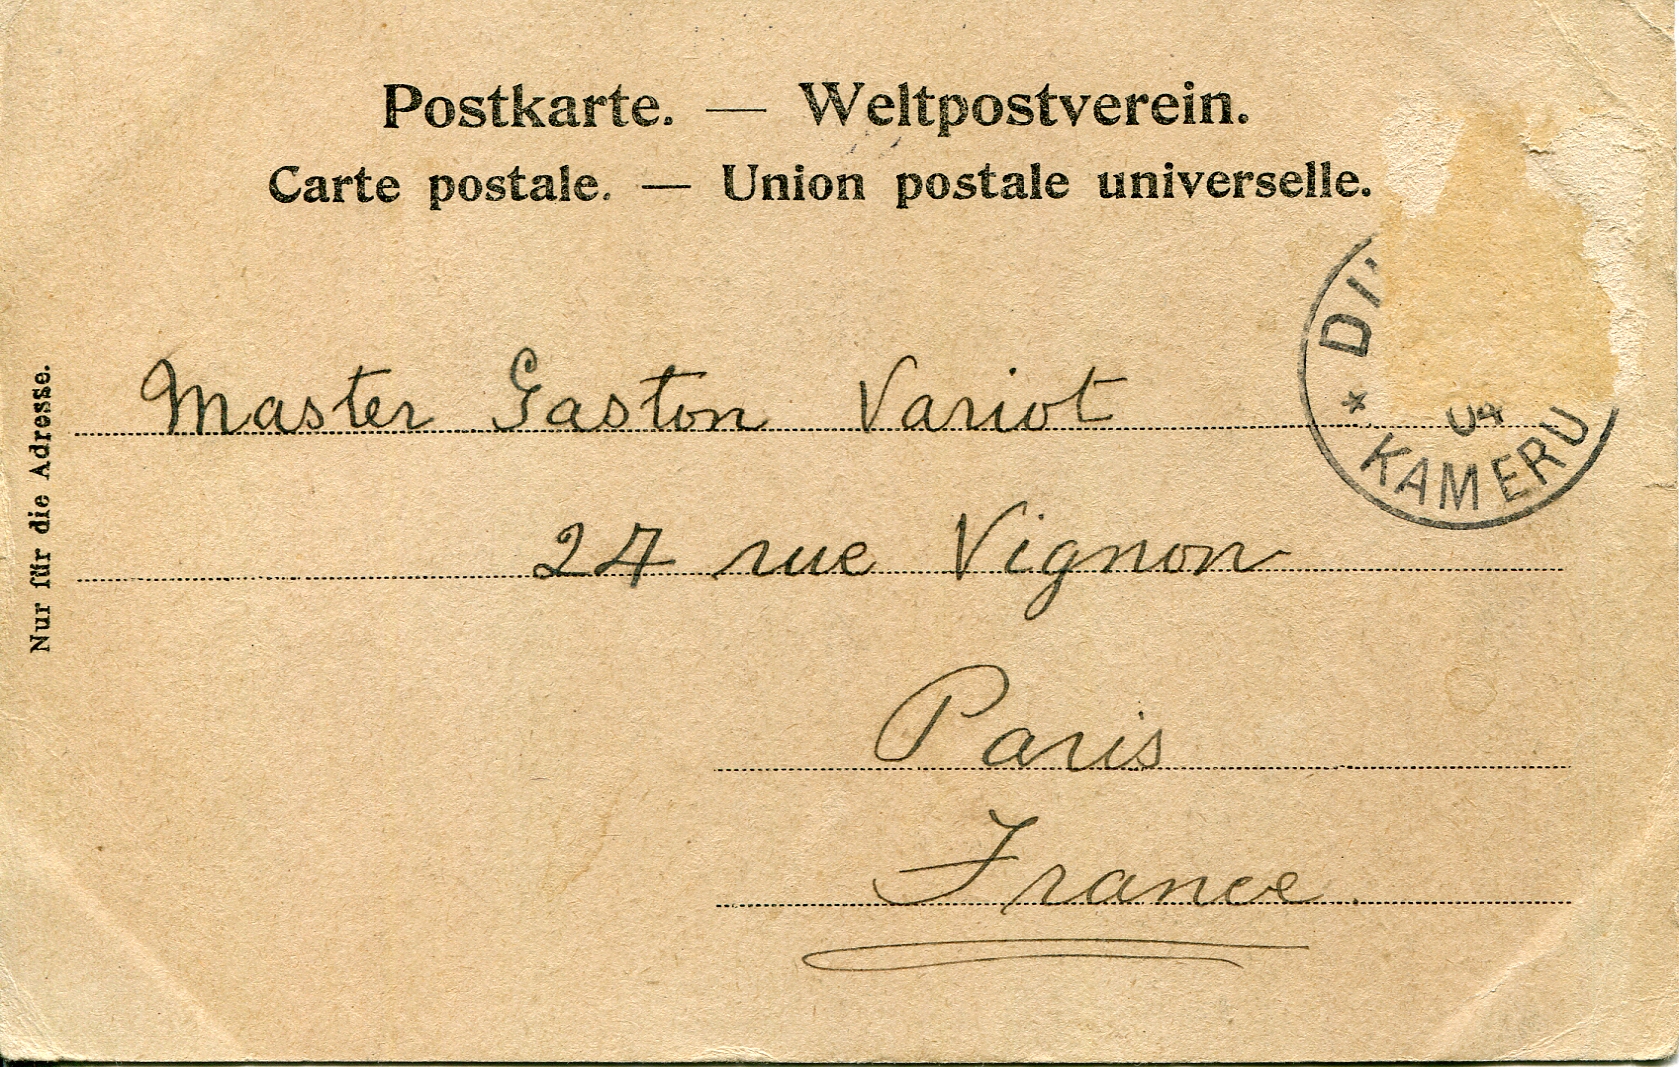 Postkarte. — Weltpostverein.
Carte postale. — Union postale universelle.
Nur für die Adresse.
Master Gaston Variot
24 rue Vignon
Paris
France.
* KAMERU
04